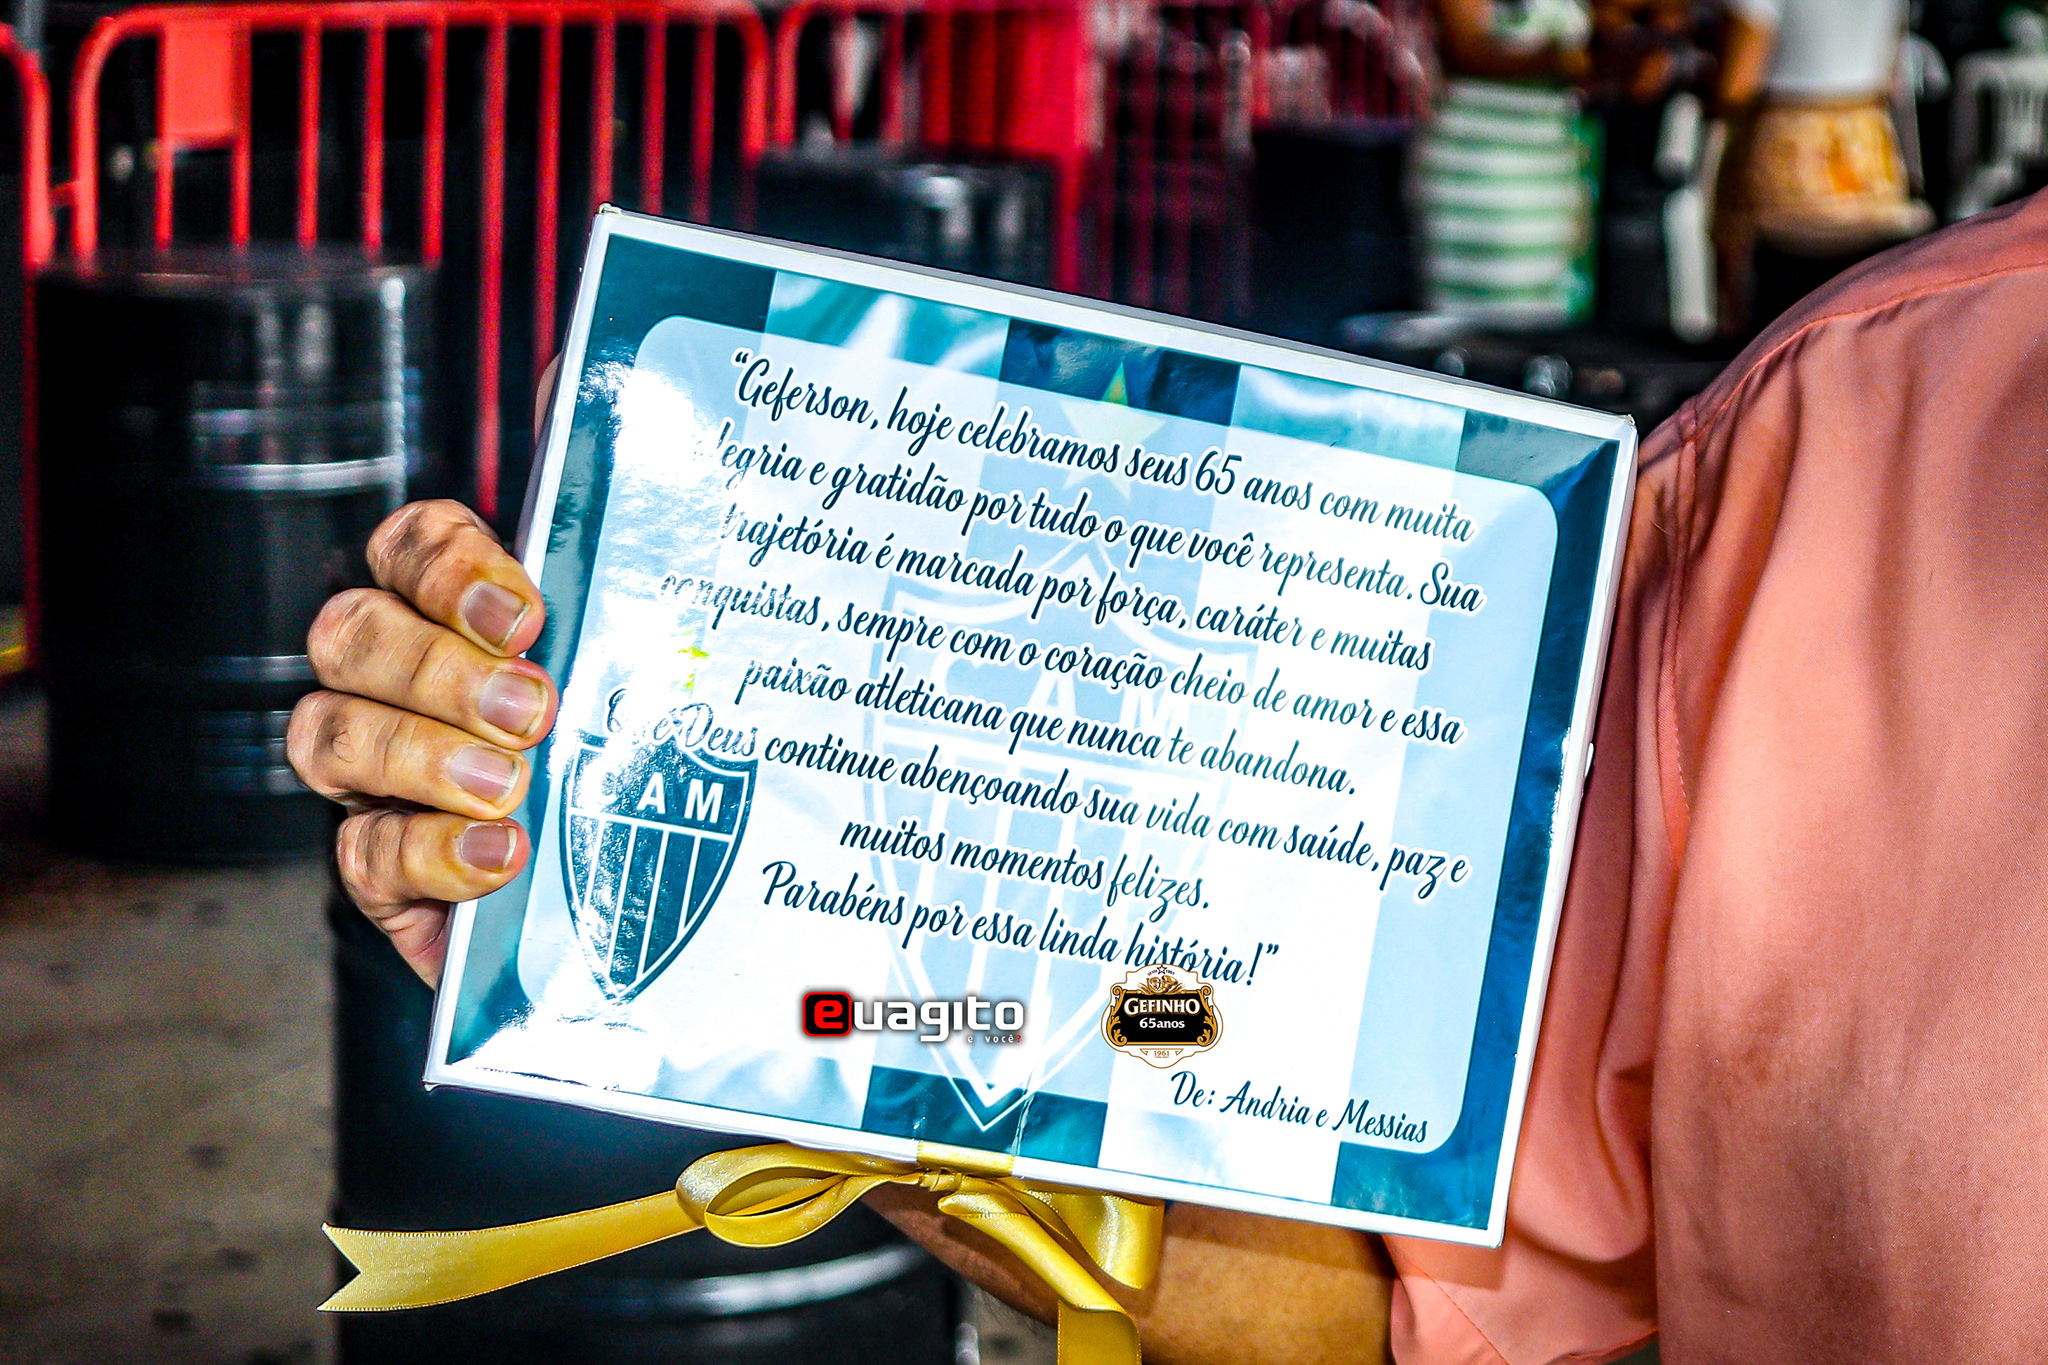 “Geferson, hoje celebramos seus 65 anos com muita
alegria e gratidão por tudo o que você representa. Sua
trajetória é marcada por força, caráter e muitas
conquistas, sempre com o coração cheio de amor e essa
paixão atleticana que nunca te abandona.
Que Deus continue abençoando sua vida com saúde, paz e
muitos momentos felizes.
Parabéns por essa linda história!”
CAM
CAM
euagito
e você?
GEFINHO
65anos
1961
De: Andria e Messias